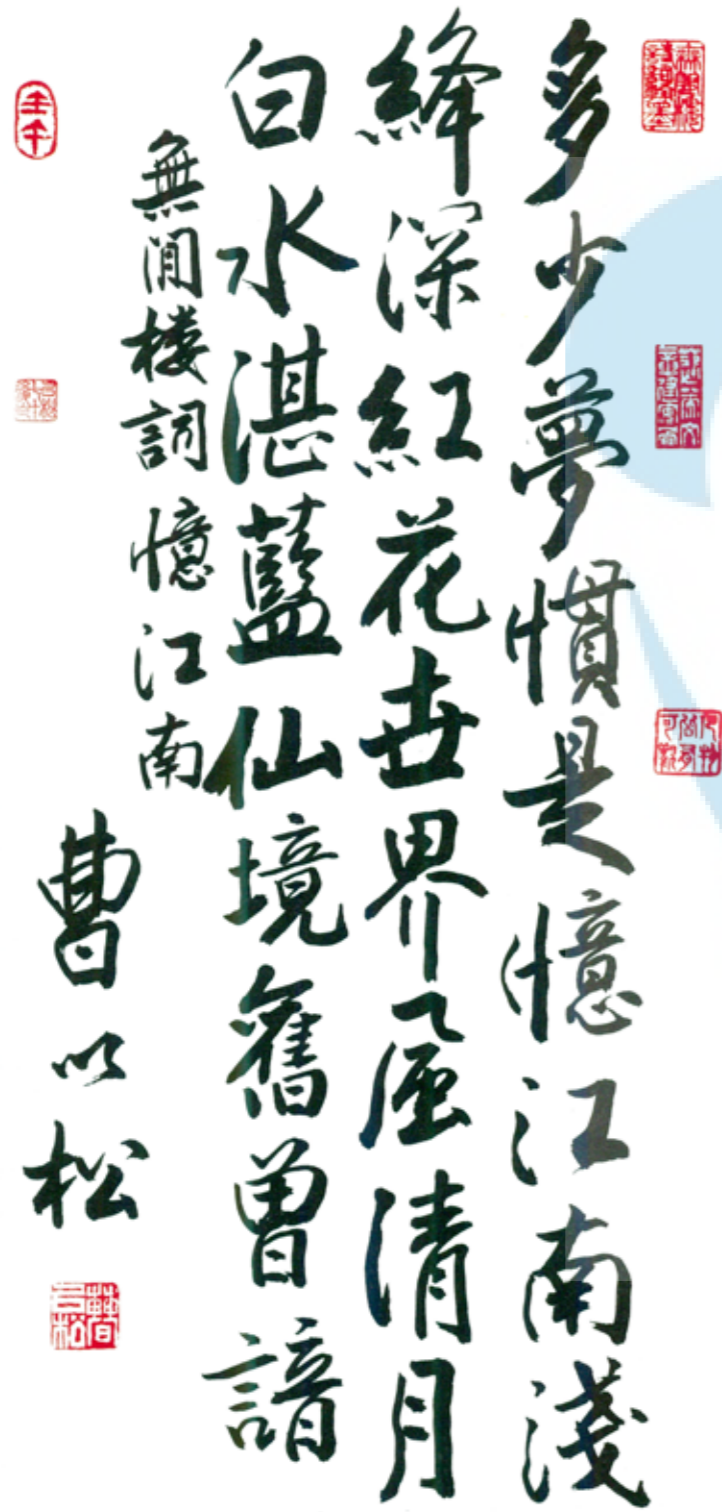 多少夢慣是憶江南淺
絳深紅花世界風清月
白水湛藍仙境舊曾諳
無閒楼詞憶江南
曹以松